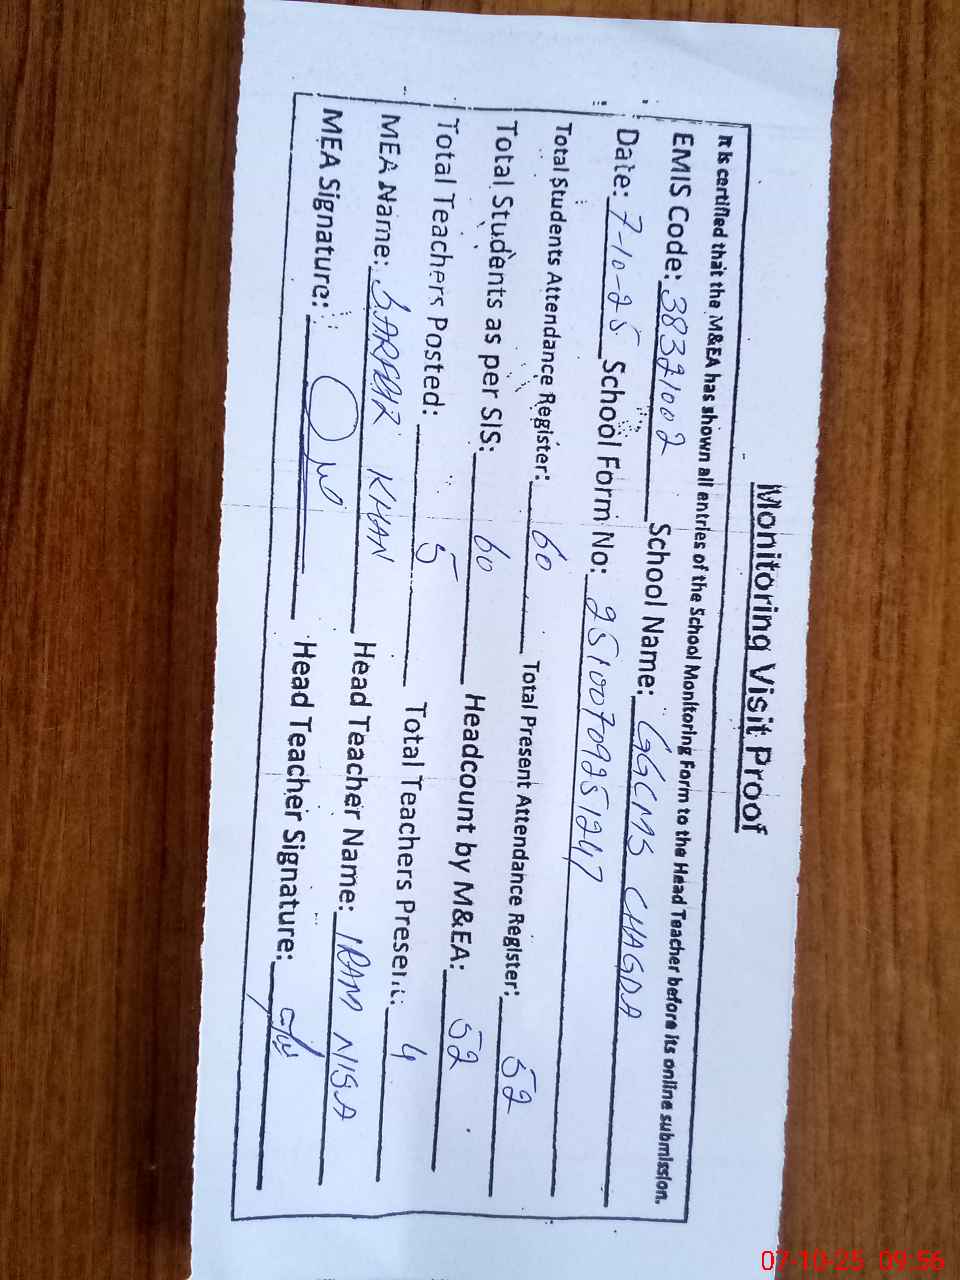 Monitoring Visit Proof
It is certified that the M&EA has shown all entries of the School Monitoring Form to the Head Teacher before its online submission.
EMIS Code: 38321002 School Name: GGCMS CHAGDA
Date: 7-10-25 School Form No: 25100709251247
Total Students Attendance Register: 60 Total Present Attendance Register: 52
Total Students as per SIS: 60 Headcount by M&EA: 52
Total Teachers Posted: 5 Total Teachers Present: 4
MEA Name: SARFRAZ KHAN Head Teacher Name: IRAM NISA
MEA Signature: Head Teacher Signature:
07-10-25 09:56